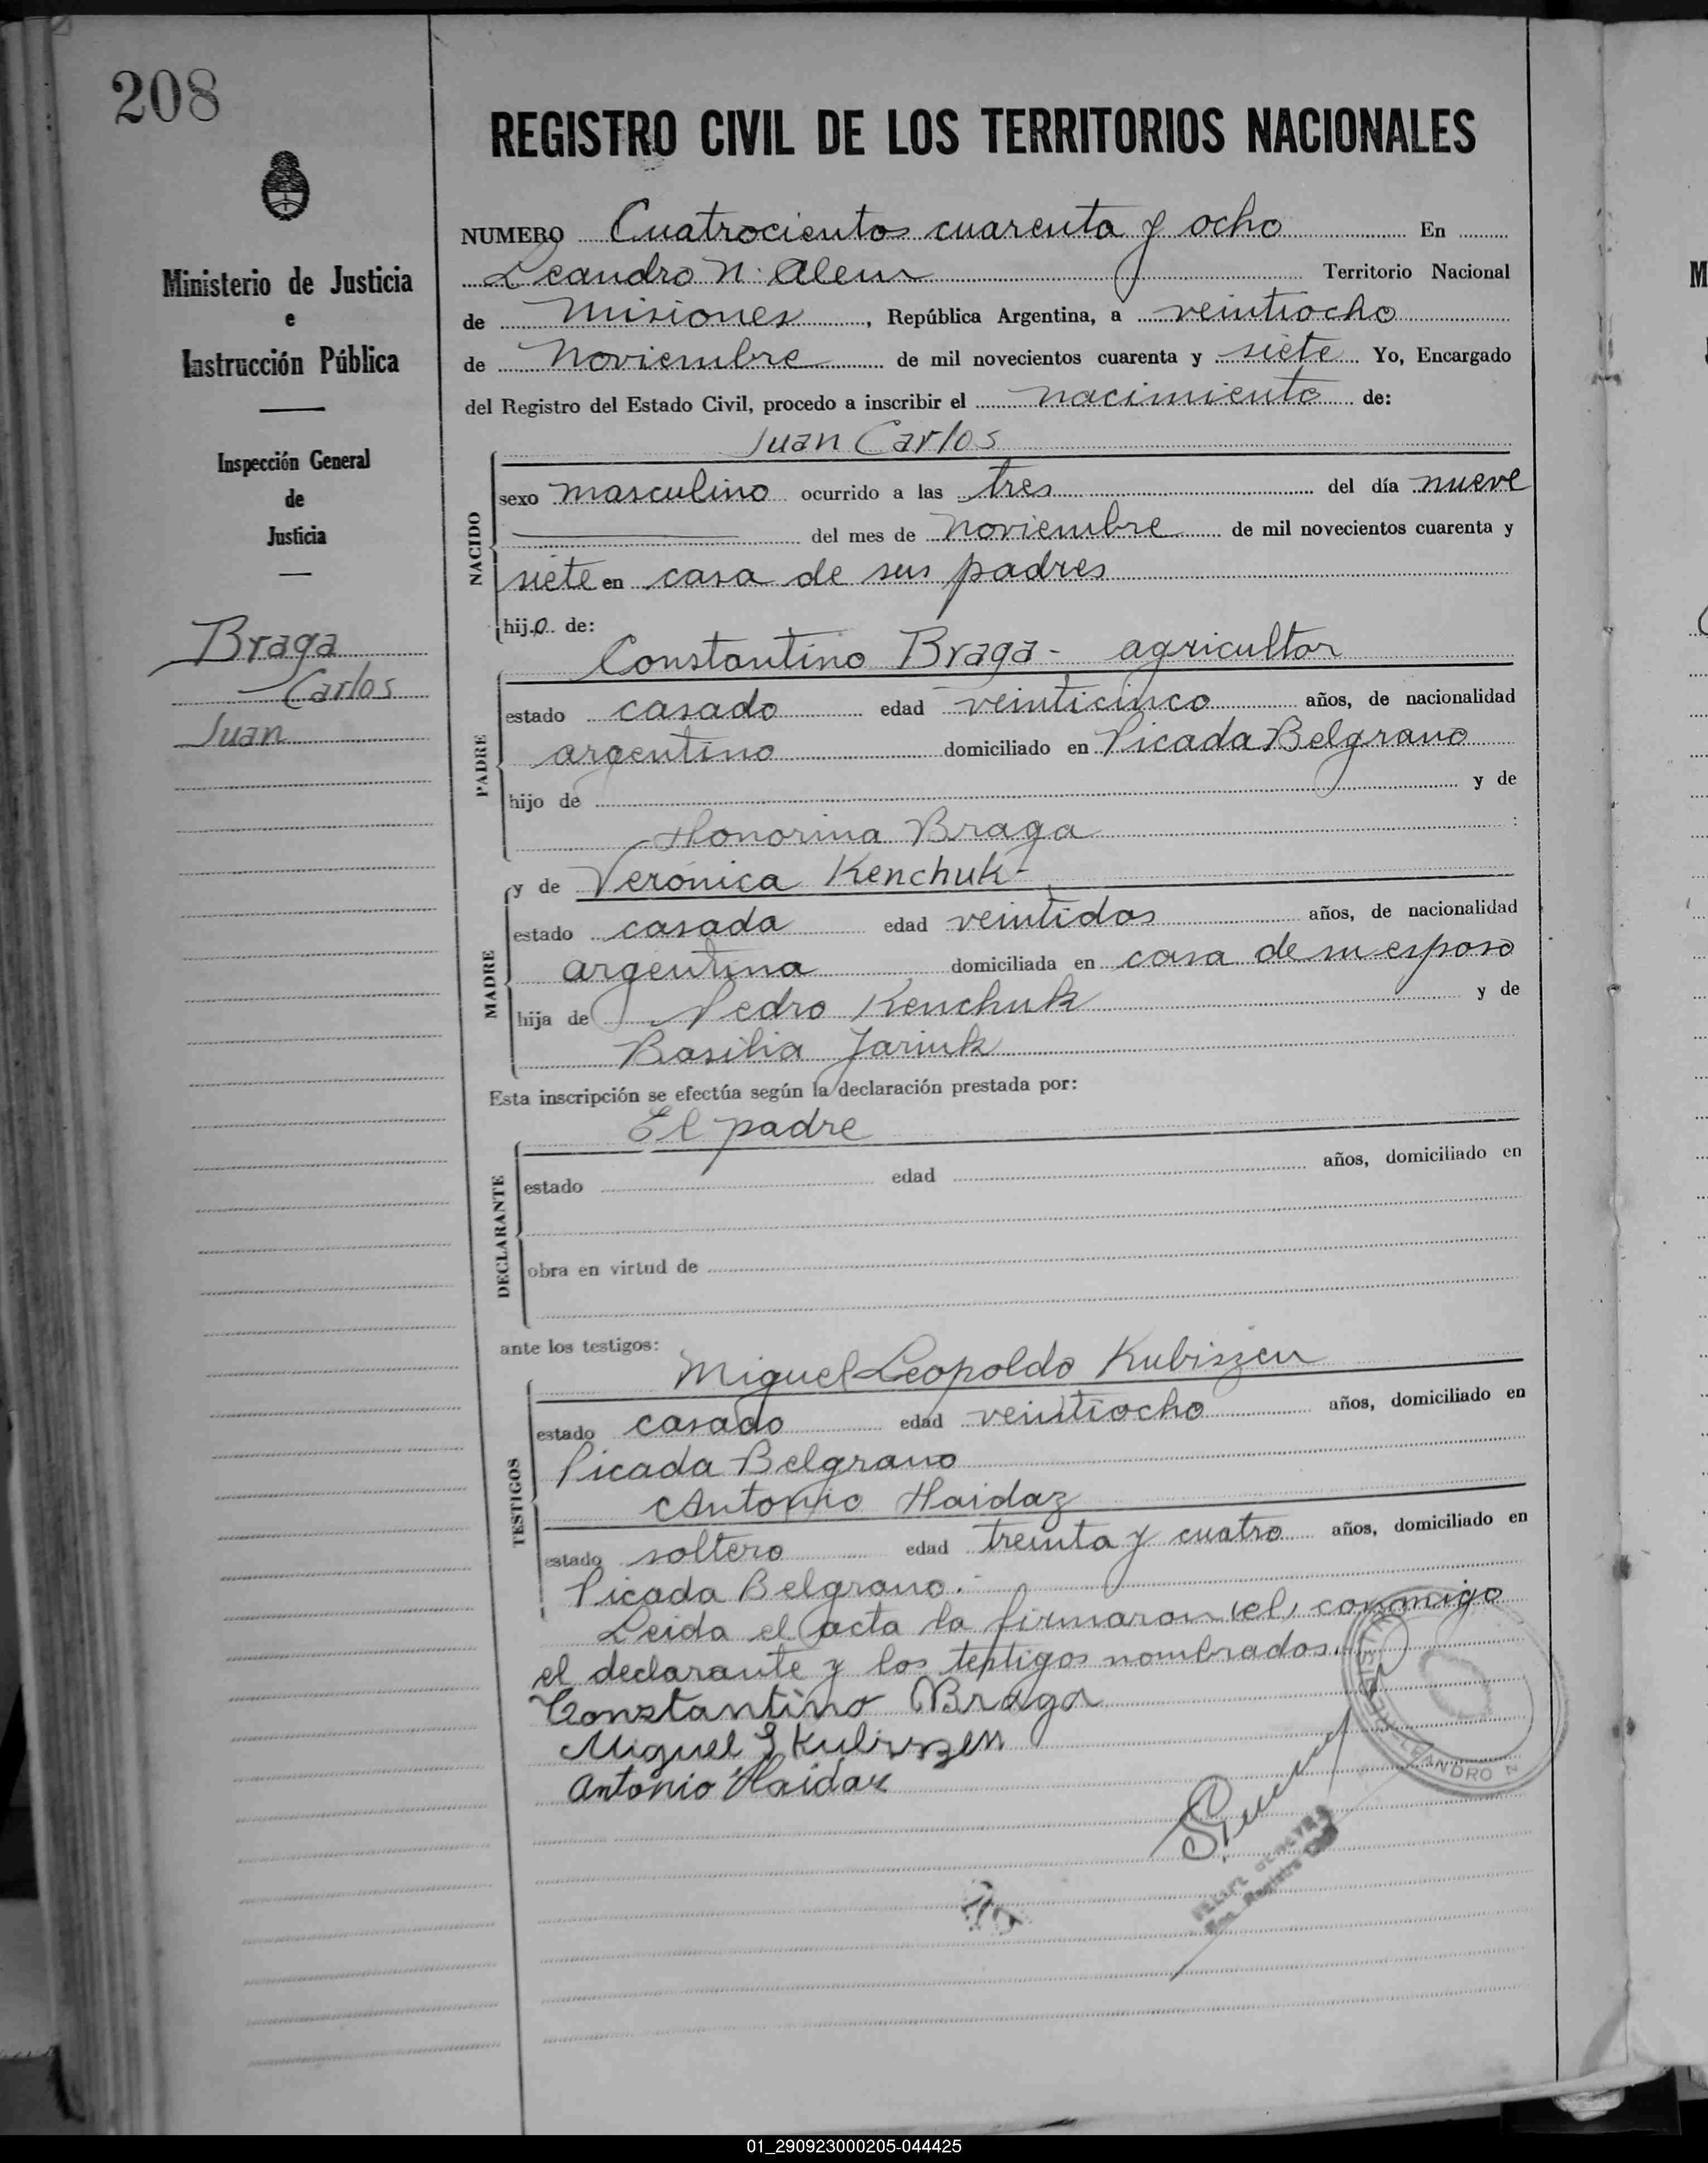 208
REGISTRO CIVIL DE LOS TERRITORIOS NACIONALES
Ministerio de Justicia
e
Instrucción Pública
Inspección General
de
Justicia
Braga
Carlos
Juan
NUMERO Cuatrocientos cuarenta y ocho En
Leandro N. Alem Territorio Nacional
de Misiones, República Argentina, a veintiocho
de Noviembre de mil novecientos cuarenta y siete Yo, Encargado
del Registro del Estado Civil, procedo a inscribir el nacimiento de:
Juan Carlos
NACIDO
sexo masculino ocurrido a las tres del día nueve
del mes de noviembre de mil novecientos cuarenta y
siete en casa de sus padres
hijo de:
Constantino Braga - agricultor
PADRE
estado casado edad veinticinco años, de nacionalidad
argentino domiciliado en Picada Belgrano
hijo de y de
Honorina Braga
MADRE
y de Verónica Kenchuk -
estado casada edad veintidos años, de nacionalidad
argentina domiciliada en casa de su esposo
hija de Pedro Kenchuk y de
Basilia Jariuk
Esta inscripción se efectúa según la declaración prestada por:
El padre
DECLARANTE
estado edad años, domiciliado en
obra en virtud de
ante los testigos:
Miguel Leopoldo Kubiszen
TESTIGOS
estado casado edad veintiocho años, domiciliado en
Picada Belgrano
Antonio Haidaz
estado soltero edad treinta y cuatro años, domiciliado en
Picada Belgrano.
Leida el acta la firmaron (el) conmigo
el declarante y los testigos nombrados.
Constantino Braga
Miguel L Kubiszen
Antonio Haidaz
LEANDRO N
Registro
01_290923000205-044425